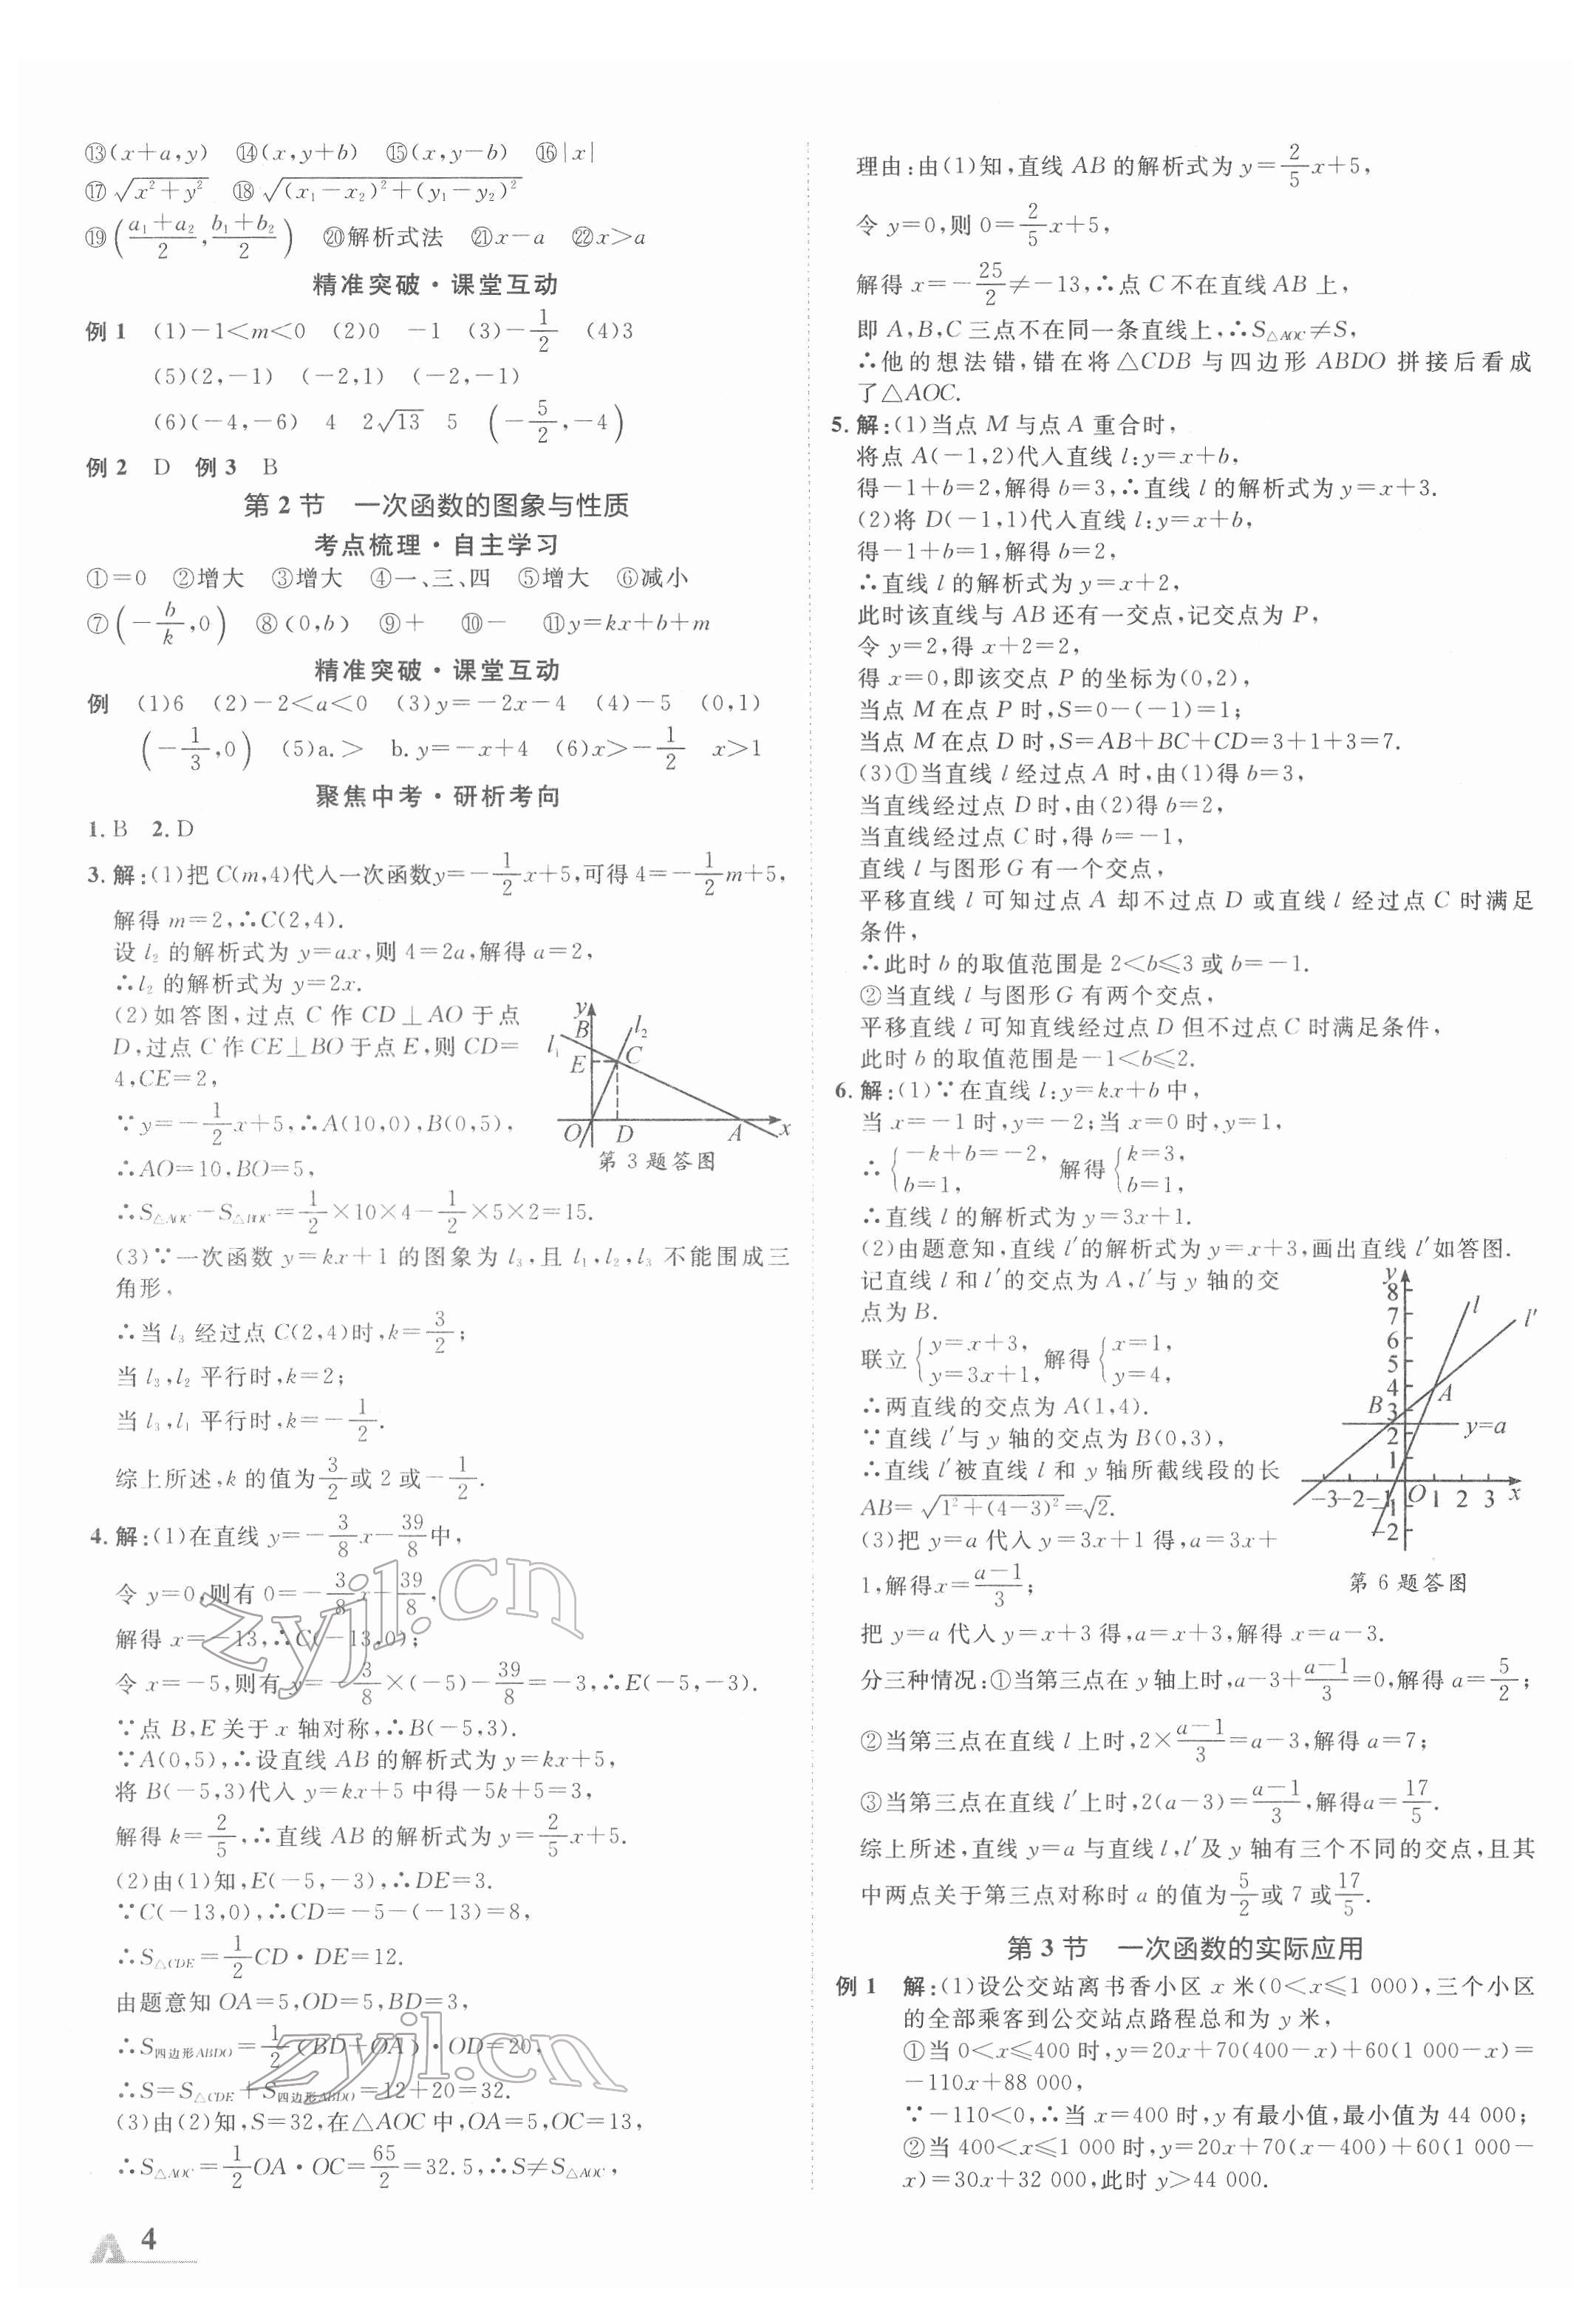 ⑬(x+a,y) ⑭(x,y+b) ⑮(x,y-b) ⑯|x|
⑰√(x²+y²) ⑱√((x₁-x₂)²+(y₁-y₂)²)
⑲((a₁+a₂)/2,(b₁+b₂)/2) ⑳解析式法 ㉑x-a ㉒x>a
精准突破·课堂互动
例1 (1)-1<m<0 (2)0 -1 (3)-1/2 (4)3
(5)(2,-1) (-2,1) (-2,-1)
(6)(-4,-6) 4 2√13 5 (-5/2,-4)
例2 D 例3 B
第2节 一次函数的图象与性质
考点梳理·自主学习
①=0 ②增大 ③增大 ④一、三、四 ⑤增大 ⑥减小
⑦(-b/k,0) ⑧(0,b) ⑨+ ⑩- ⑪y=kx+b+m
精准突破·课堂互动
例 (1)6 (2)-2<a<0 (3)y=-2x-4 (4)-5 (0,1)
(-1/3,0) (5)a.> b.y=-x+4 (6)x>-1/2 x>1
聚焦中考·研析考向
1.B 2.D
3.解:(1)把C(m,4)代入一次函数y=-1/2x+5,可得4=-1/2m+5,
解得m=2,∴C(2,4).
设l₂的解析式为y=ax,则4=2a,解得a=2,
∴l₂的解析式为y=2x.
(2)如答图,过点C作CD⊥AO于点
D,过点C作CE⊥BO于点E,则CD=
4,CE=2,
∵y=-1/2x+5,∴A(10,0),B(0,5),
∴AO=10,BO=5,
y B l₂ l₁ E C O D A x
第3题答图
∴S△AOC-S△BOC=1/2×10×4-1/2×5×2=15.
(3)∵一次函数y=kx+1的图象为l₃,且l₁,l₂,l₃不能围成三
角形,
∴当l₃经过点C(2,4)时,k=3/2;
当l₃,l₂平行时,k=2;
当l₃,l₁平行时,k=-1/2.
综上所述,k的值为3/2或2或-1/2.
4.解:(1)在直线y=-3/8x-39/8中,
令y=0,则有0=-3/8x-39/8,
解得x=-13,∴C(-13,0);
令x=-5,则有y=-3/8×(-5)-39/8=-3,∴E(-5,-3).
∵点B,E关于x轴对称,∴B(-5,3).
∵A(0,5),∴设直线AB的解析式为y=kx+5,
将B(-5,3)代入y=kx+5中得-5k+5=3,
解得k=2/5,∴直线AB的解析式为y=2/5x+5.
(2)由(1)知,E(-5,-3),∴DE=3.
∵C(-13,0),∴CD=-5-(-13)=8,
∴S△CDE=1/2CD·DE=12.
由题意知OA=5,OD=5,BD=3,
∴S四边形ABDO=1/2(BD+OA)·OD=20,
∴S=S△CDE+S四边形ABDO=12+20=32.
(3)由(2)知,S=32,在△AOC中,OA=5,OC=13,
∴S△AOC=1/2OA·OC=65/2=32.5,∴S≠S△AOC,
zyjl.cn
zyjl.cn
4
理由:由(1)知,直线AB的解析式为y=2/5x+5,
令y=0,则0=2/5x+5,
解得x=-25/2≠-13,∴点C不在直线AB上,
即A,B,C三点不在同一条直线上,∴S△AOC≠S,
∴他的想法错,错在将△CDB与四边形ABDO拼接后看成
了△AOC.
5.解:(1)当点M与点A重合时,
将点A(-1,2)代入直线l:y=x+b,
得-1+b=2,解得b=3,∴直线l的解析式为y=x+3.
(2)将D(-1,1)代入直线l:y=x+b,
得-1+b=1,解得b=2,
∴直线l的解析式为y=x+2,
此时该直线与AB还有一交点,记交点为P,
令y=2,得x+2=2,
得x=0,即该交点P的坐标为(0,2),
当点M在点P时,S=0-(-1)=1;
当点M在点D时,S=AB+BC+CD=3+1+3=7.
(3)①当直线l经过点A时,由(1)得b=3,
当直线经过点D时,由(2)得b=2,
当直线经过点C时,得b=-1,
直线l与图形G有一个交点,
平移直线l可知过点A却不过点D或直线l经过点C时满足
条件,
∴此时b的取值范围是2<b≤3或b=-1.
②当直线l与图形G有两个交点,
平移直线l可知直线经过点D但不过点C时满足条件,
此时b的取值范围是-1<b≤2.
6.解:(1)∵在直线l:y=kx+b中,
当x=-1时,y=-2;当x=0时,y=1,
∴{-k+b=-2, b=1, 解得{k=3, b=1,
∴直线l的解析式为y=3x+1.
(2)由题意知,直线l′的解析式为y=x+3,画出直线l′如答图.
记直线l和l′的交点为A,l′与y轴的交
点为B.
联立{y=x+3, y=3x+1, 解得{x=1, y=4,
∴两直线的交点为A(1,4).
∵直线l′与y轴的交点为B(0,3),
∴直线l′被直线l和y轴所截线段的长
AB=√(1²+(4-3)²)=√2.
(3)把y=a代入y=3x+1得,a=3x+
1,解得x=(a-1)/3;
y 8 7 6 5 4 3 2 1 l l′ A B y=a -3-2-1 O 1 2 3 x -1 -2
第6题答图
把y=a代入y=x+3得,a=x+3,解得x=a-3.
分三种情况:①当第三点在y轴上时,a-3+(a-1)/3=0,解得a=5/2;
②当第三点在直线l上时,2×(a-1)/3=a-3,解得a=7;
③当第三点在直线l′上时,2(a-3)=(a-1)/3,解得a=17/5.
综上所述,直线y=a与直线l,l′及y轴有三个不同的交点,且其
中两点关于第三点对称时a的值为5/2或7或17/5.
第3节 一次函数的实际应用
例1 解:(1)设公交站离书香小区x米(0<x≤1 000),三个小区
的全部乘客到公交站点路程总和为y米,
①当0<x≤400时,y=20x+70(400-x)+60(1 000-x)=
-110x+88 000,
∵-110<0,∴当x=400时,y有最小值,最小值为44 000;
②当400<x≤1 000时,y=20x+70(x-400)+60(1 000-
x)=30x+32 000,此时y>44 000.